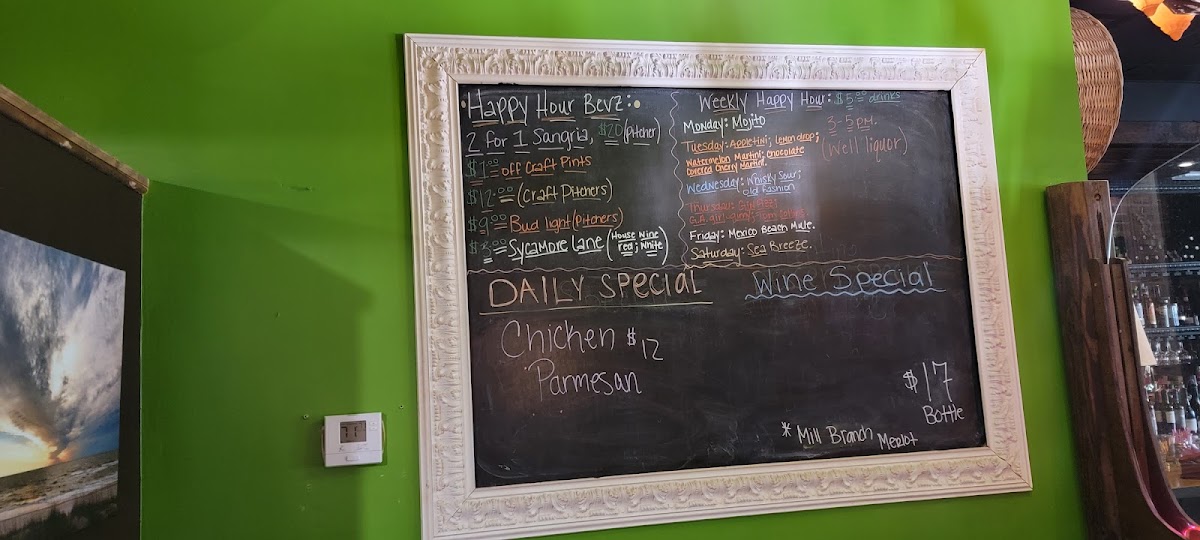 Happy Hour Bevz:
2 for 1 Sangria, $20 (Pitcher)
$1.00 off Craft Pints
$12.00 (Craft Pitchers)
$9.00 Bud light (Pitchers)
Sycamore Lane (House Wine red; White)
Weekly Happy Hour: $5.00 drinks
3-5 pm.
(Well liquor)
Monday: Mojito
Tuesday: Appletini; lemon drop;
Watermelon Martini; Chocolate
Covered Cherry Martini.
Wednesday: Whisky Sour;
Old Fashion
Thursday:
Friday: Mexico Beach Mule.
Saturday: Sea Breeze.
DAILY SPECIAL
Chicken $12
Parmesan
Wine Special
$17
Bottle
* Mill Branch Merlot
77